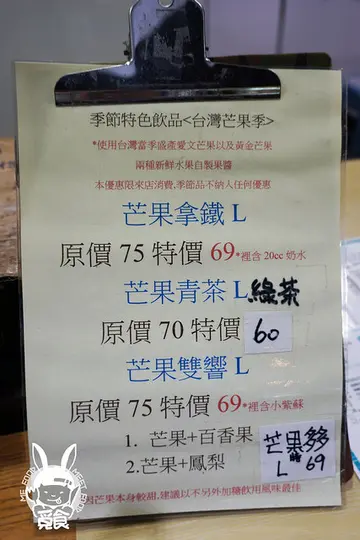 季節特色飲品<台灣芒果季>
*使用台灣當季盛產愛文芒果以及黃金芒果
兩種新鮮水果自製果醬
本優惠限來店消費,季節品不納入任何優惠
芒果拿鐵 L
原價 75 特價 69*裡含 20cc 奶水
芒果青茶 L 綠茶
原價 70 特價 60
芒果雙響 L
原價 75 特價 69*裡含小紫蘇
1. 芒果+百香果
2.芒果+鳳梨
芒果多多
L 69
因芒果本身較甜,建議以不另外加糖飲用風味最佳
覓食